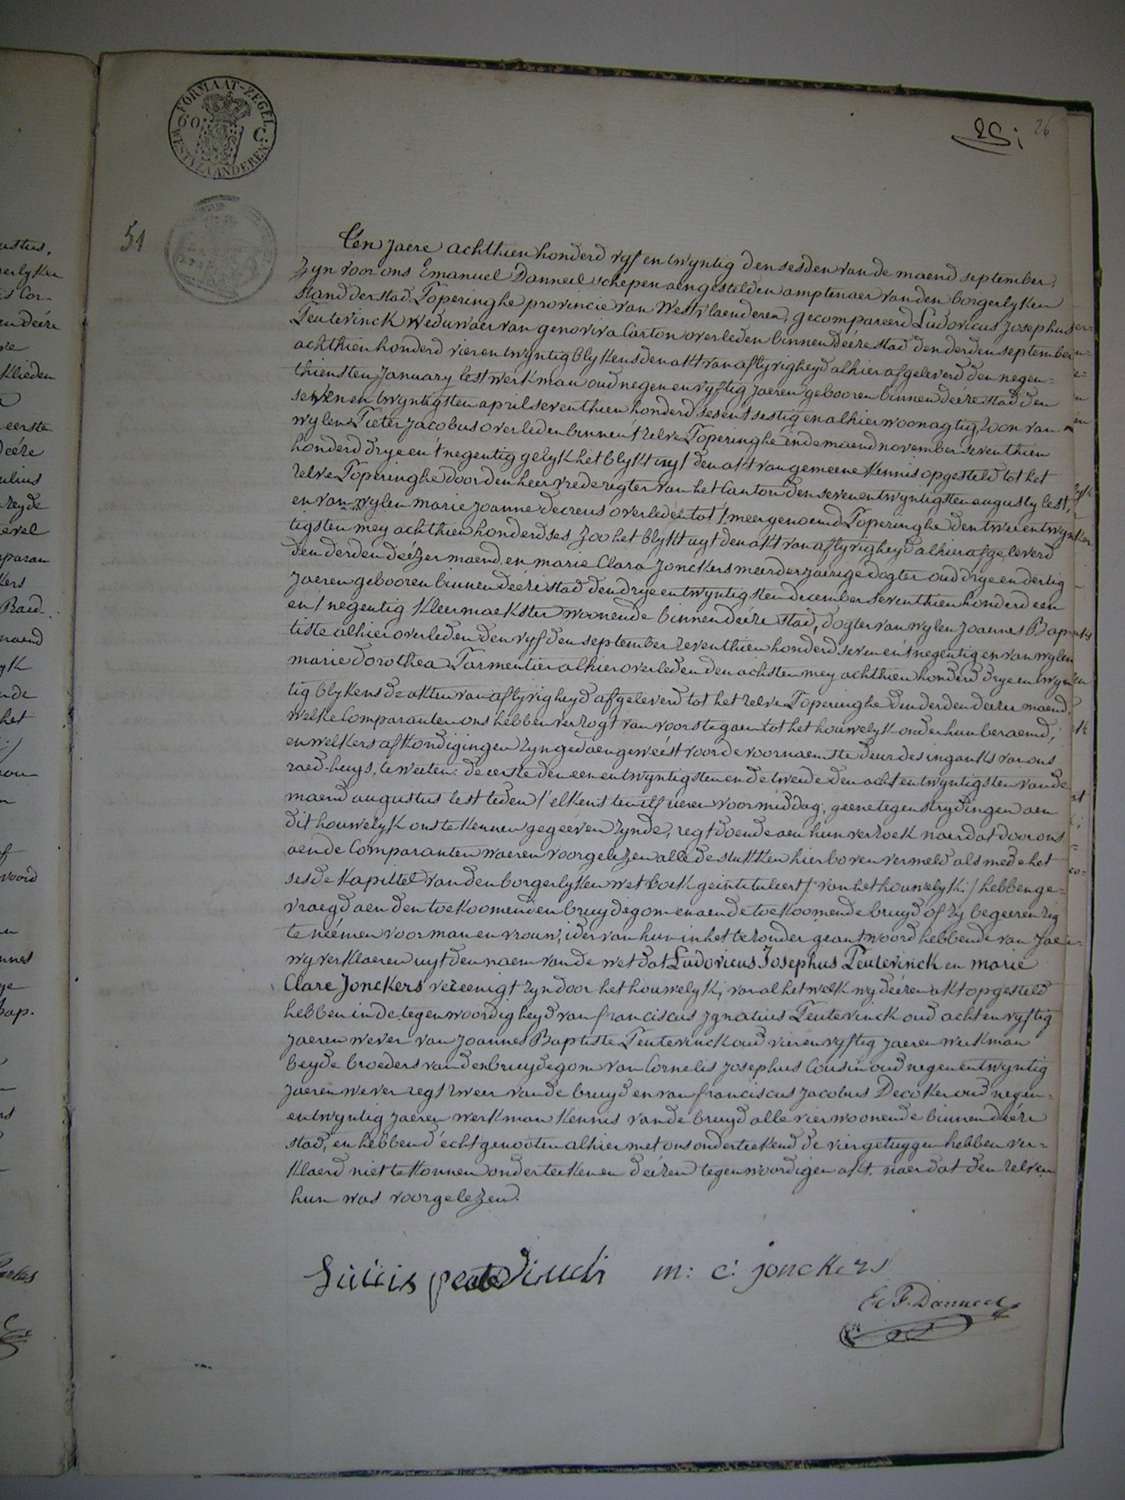 FORMAAT-ZEGEL
60 C.
WESTVLAANDEREN
26
51
Een jaere achthien honderd vyf en twyntig den sesden van de maend september,
Zyn voor ons Emanuel Danneel schepen aengestelden amptenaer van den borgerlyken
stand der stad Poperinghe provincie van Westvlaenderen, gecompareerd Ludovicus Josephus
Peutevinck Weduwaer van genoviva Carton overleden binnen deéze stad den derden september
achthien honderd vier en twyntig blykens den akt van aflyvigheyd alhier afgeleverd den negen-
thiensten January lest werkman oud negen en vyftig jaeren gebooren binnen deéze stad den
seven en twyntigsten april seventhien honderd ses en t'sestig en alhier woonagtig, zoon van
wylen Pieter Jacobus overleden binnen t'zelve Poperinghe in de maend november seventhien
honderd drye en t'negentig gelyk het blykt uyt den akt van gemeene kennis opgesteld tot het
zelve Poperinghe door den heer vrederegter van het Canton den seven en twyntigsten augusty lest,
en van wylen marie joanne decreus overleden tot t'meergenoemd Poperinghe den twee en twyn-
tigsten mey achthien honderd ses zoo het blykt uyt den akt van aflyvigheyd alhier afgeleverd
den derden deézer maend, en marie Clara Jonckers meerderjaerige dogter oud drye en dertig
jaeren gebooren binnen deéze stad den drye en twyntigsten december seventhien honderd een
en t'negentig kleermaekster woonende binnen deéze stad, dogter van wylen Joannes Bap-
tiste alhier overleden den vyfden september zeventhien honderd seven en t'negentig en van wylen
marie dorothea Parmentier alhier overleden den achsten mey achthien honderd drye en twyn-
tig blykens de akten van aflyvigheyd afgeleverd tot het zelve Poperinghe den derden deezer maend,
welke Comparanten ons hebben verzogt van voorstegaen tot het houwelyk onder hun beraemd,
en welkers afkondigingen zyn gedaen geweést voor de voornaemste deur des ingankx van ons
raed-huys, te weéten: de eerste den een en twyntigsten en de tweede den acht en twyntigsten van de
maend augustus lest leden t'elkens ten elf uren voormiddag; geene tegenstrydingen aen
dit houwelyk ons te kennen gegeéven zynde, regt doende aen hun verzoek naer dat door ons
aen de Comparanten waeren voorgelezen alle de stukken hier boven vermeld als mede het
sesde kapittel van den borgerlyken wetboek geintituleert / van het houwelyk / hebben ge-
vraegd aen den toekoomenden bruydegom en aen de toekoomende bruyd of zy begeeren zig
te neémen voor man en vrouw; ider van hun in het bezonder geantwoord hebbende van Jaé;
wy verklaeren uyt den naem van de wet dat Ludovicus Josephus Peutevinck en marie
Clare Jonckers vereenigt zyn door het houwelyk; van al het welk wy deézen akt opgesteld
hebben in de tegenwoordigheyd van franciscus Ignatius Peutevinck oud acht en vyftig
jaeren wever van Joannes Baptiste Peutevinck oud vier en vyftig jaeren werkman
beyde broeders van den bruydegom van Cornelis Josephus Cousin oud negen en twyntig
jaeren wever regt zweer van de bruyd en van franciscus Jacobus Decoker oud negen-
en twyntig jaeren werkman kennis van de bruyd alle vier woonende binnen deéze
stad, en hebben d'echtgenooten alhier met ons onderteekend de vier getuygen hebben ver-
klaerd niet te konnen onderteekenen deézen tegenwoordigen akt, naer dat den zelven
hun was voorgelezen.
m: c: jonckers
E F. Danneel